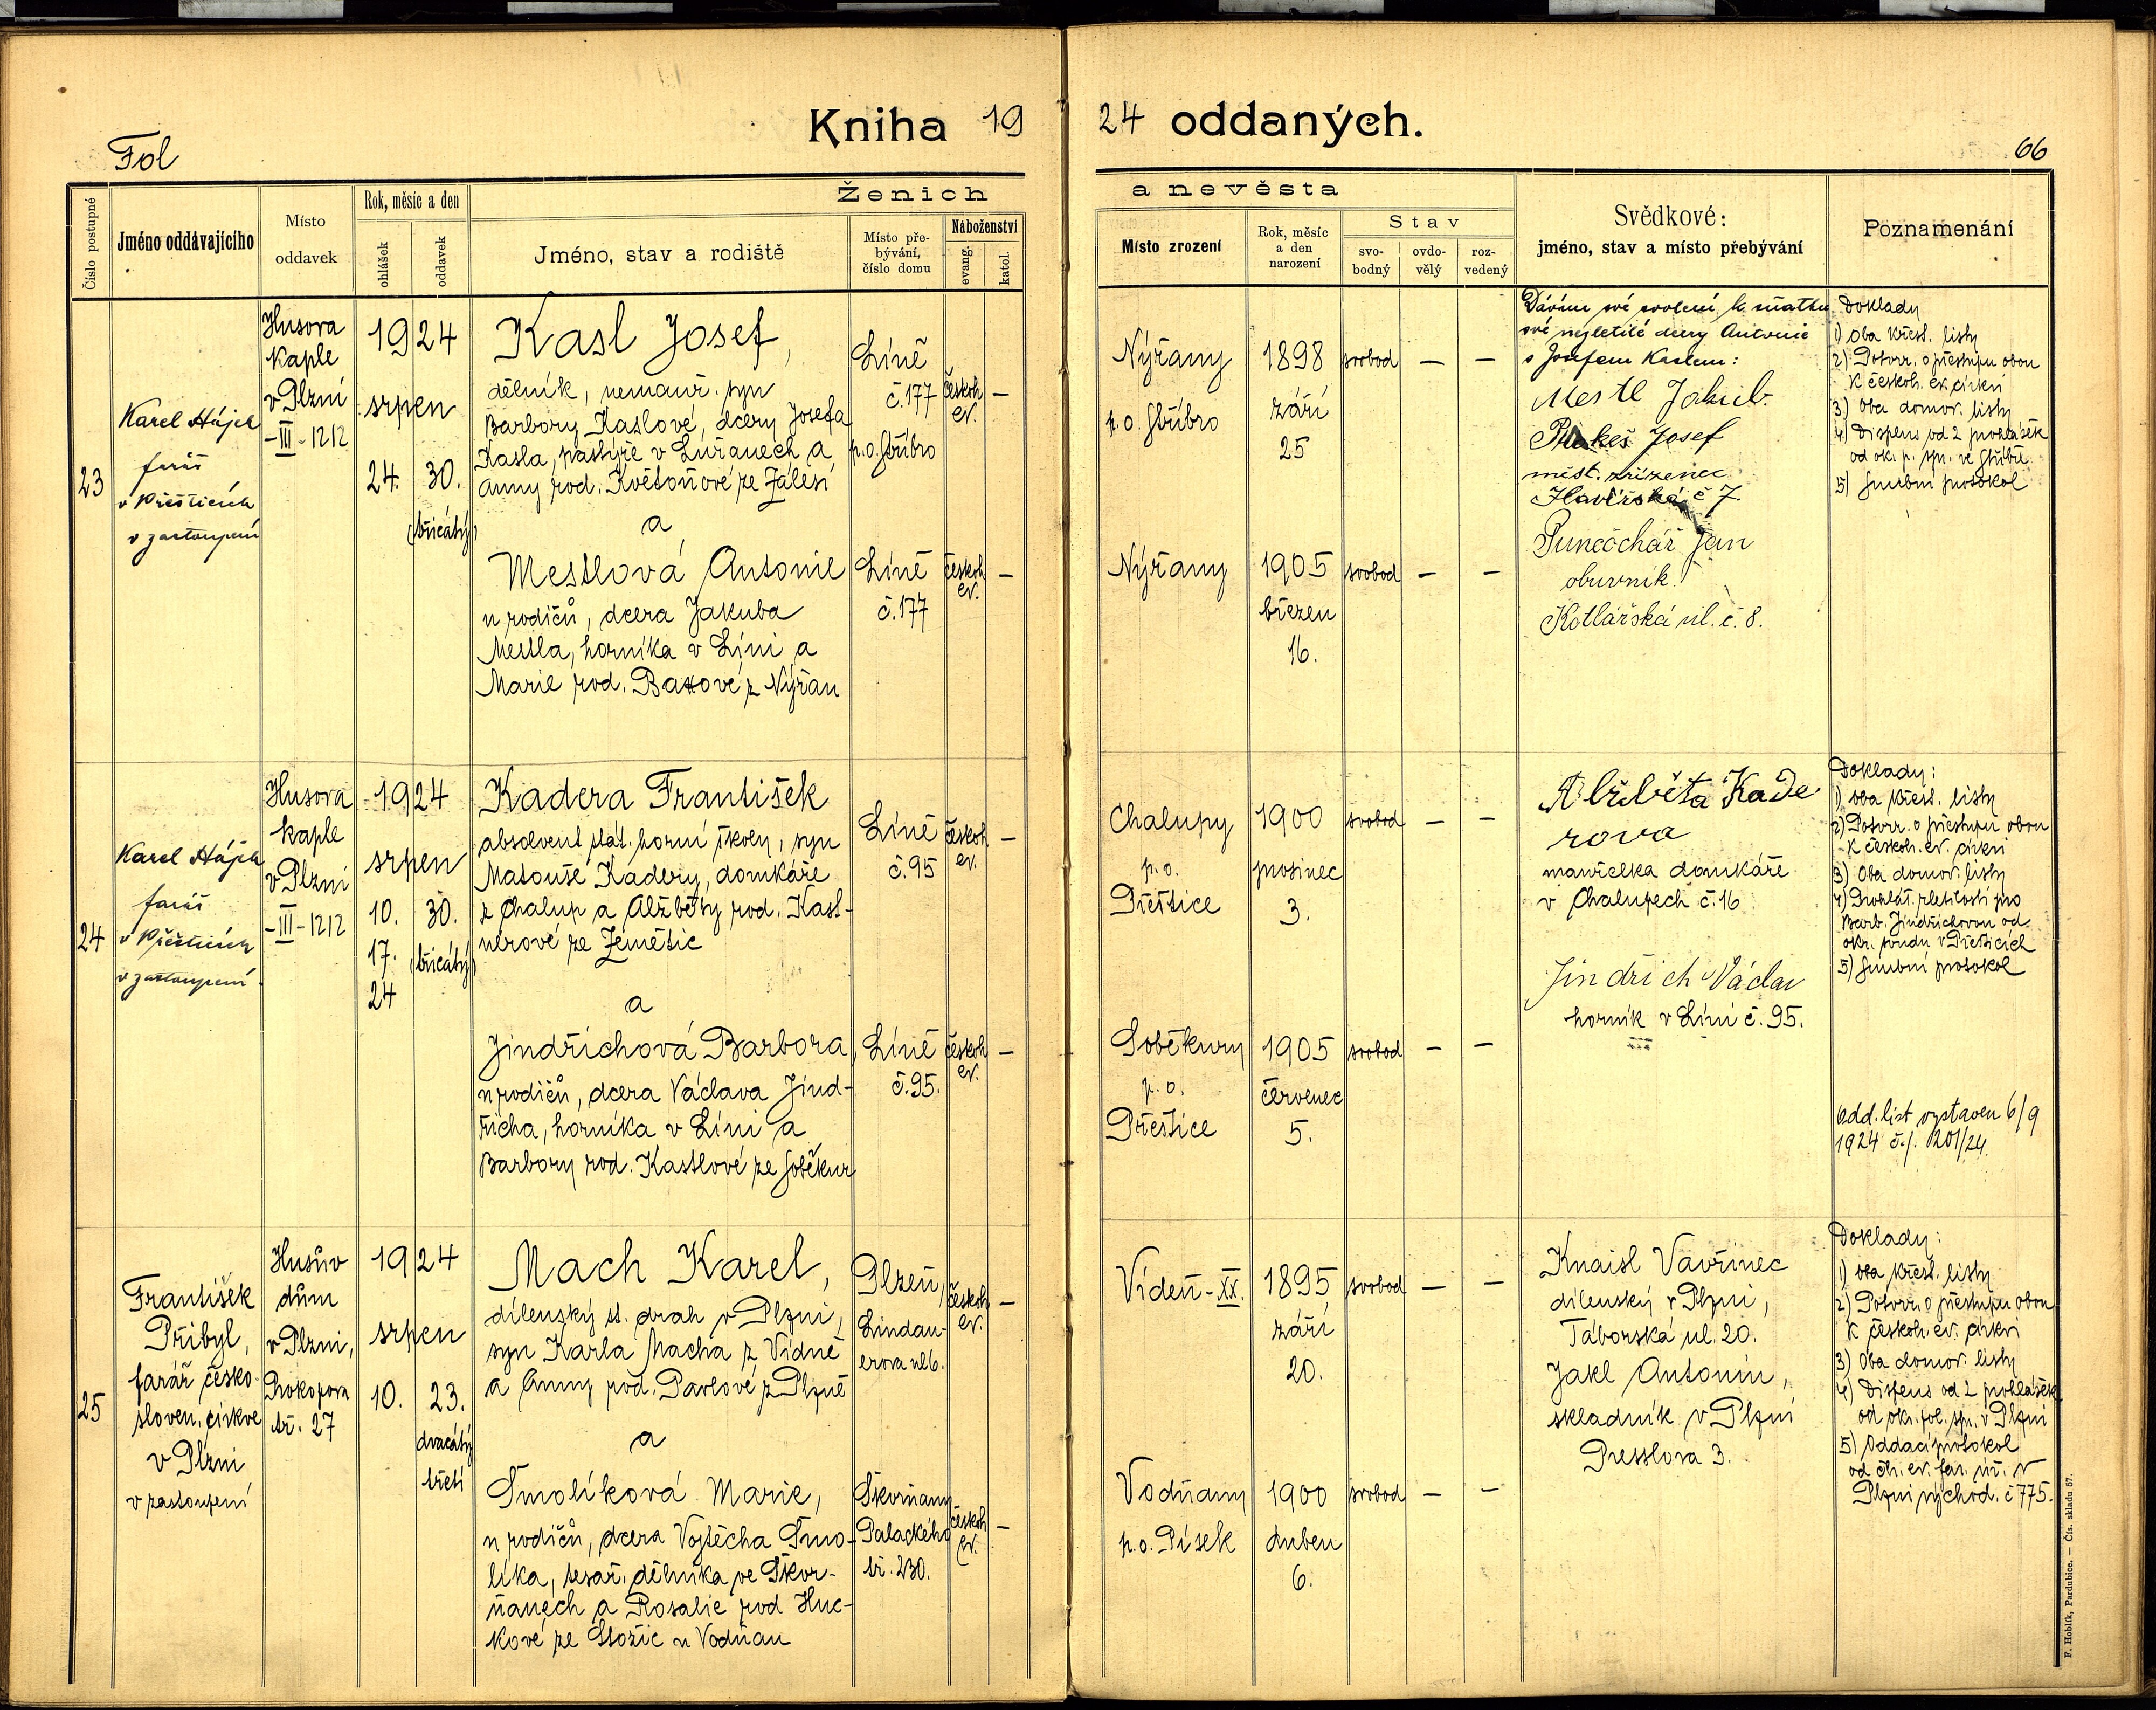 Kniha 19
24 oddaných.
Fol
66
Ženich
a nevěsta
Číslo postupné
Jméno oddávajícího
Místo
oddavek
Rok, měsíc a den
ohlášek
oddavek
Jméno, stav a rodiště
Místo pře-
bývání,
číslo domu
Náboženství
evang.
katol.
Místo zrození
Rok, měsíc
a den
narození
Stav
svo-
bodný
ovdo-
vělý
roz-
vedený
Svědkové:
jméno, stav a místo přebývání
Poznamenání
23
Karel Hájek
farář
v Přešticích
v zastoupení
Husova
kaple
v Plzni
-III-1212
1924
srpen
24. 30.
(třicátý)
Kasl Josef,
dělník, nemanž. syn
Barbory Kaslové, dcery Josefa
Kasla, pastýře v Lužanech a
Anny roz. Květoňové ze Zálesí
a
Mestlová Antonie
u rodičů, dcera Jakuba
Mestla, horníka v Líni a
Marie roz. Baxové z Nýřan
Líně
č. 177
p. o. Stříbro
českob
ev.
–
Líně
č. 177
českob
ev.
–
Nýřany
p. o. Stříbro
1898
září
25
svobod – –
Nýřany
1905
březen
16.
svobod – –
Dávám své svolení k sňatku
své nezletilé dcery Antonie
s Josefem Kaslem:
Mestl Jakub.
Josef
měst. zřízenec
Havířská č 7
Punčochář Jan
obuvník.
Kotlářská ul. č. 8.
Doklady
1) Oba křest. listy
2) Potvrz. o přestupu obou
k českob. ev. církvi
3) Oba domov. listy
4) Dispens od 2 prohlášek
od ok. p. spr. ve Stříbře
5) Snubní protokol
24
Karel Hájek
farář
v Přešticích
v zastoupení.
Husova
kaple
v Plzni
-III-1212
1924
srpen
10. 30.
17. (třicátý)
24
Kadera František
absolvent stát. horní školy, syn
Matouše Kadery, domkáře
z Chalup a Alžběty roz. Kast-
nerové ze Zemětic
a
Jindřichová Barbora,
u rodičů, dcera Václava Jind-
řicha, horníka v Líni a
Barbory roz. Kastlové ze Soběkur
Líně
č. 95
českob
ev.
–
Líně
č. 95.
českob
ev.
–
Chalupy
p. o.
Přeštice
1900
prosinec
3.
svobod – –
Soběkury
p. o.
Přeštice
1905
červenec
5.
svobod – –
Alžběta Kade
rova
manželka domkáře
v Chalupech č. 16
Jindřich Václav
horník v Líni č. 95.
Doklady:
1) oba křest. listy
2) Potvrz. o přestupu obou
k českob. ev. církvi
3) Oba domov. listy
4) Prohláš. zletilosti pro
Barb. Jindřichovou od
okr. soudu v Přešticích
5) Snubní protokol
Odd. list vystaven 6/9
1924 č. j. 1201/24.
25
František
Přibyl,
farář česko-
sloven. církve
v Plzni
v zastoupení
Husův
dům
v Plzni,
Prokopova
tř. 27
1924
srpen
10. 23.
dvacátý
třetí
Mach Karel,
dílenský st. drah v Plzni,
syn Karla Macha z Vídně
a Anny roz. Pavlové z Plzně
a
Smolíková Marie,
u rodičů, dcera Vojtěcha Smo-
líka, tesař. dělníka ve Skvr-
ňanech a Rosalie roz Huc-
kové ze Stožic u Vodňan
Plzeň,
Lindau-
erova ul 6.
českob
ev.
–
Skvrňany
Palackého
tř. 230.
českob
ev.
–
Vídeň-XX.
1895
září
20.
svobod – –
Vodňany
p. o. Písek
1900
duben
6.
svobod – –
Knaisl Vavřinec
dílenský v Plzni,
Táborská ul. 20.
Jakl Antonín,
skladník v Plzni
Presslova 3.
Doklady:
1) oba křest. listy
2) Potvrz. o přestupu obou
k českob. ev. církvi
3) Oba domov. listy
4) Dispens od 2 prohlášek
od okr. pol. spr. v Plzni
5) Oddací protokol
od čb. ev. far. úř. v
Plzni východ. č 775.
F. Hoblík, Pardubice. — Čís. skladu 57.